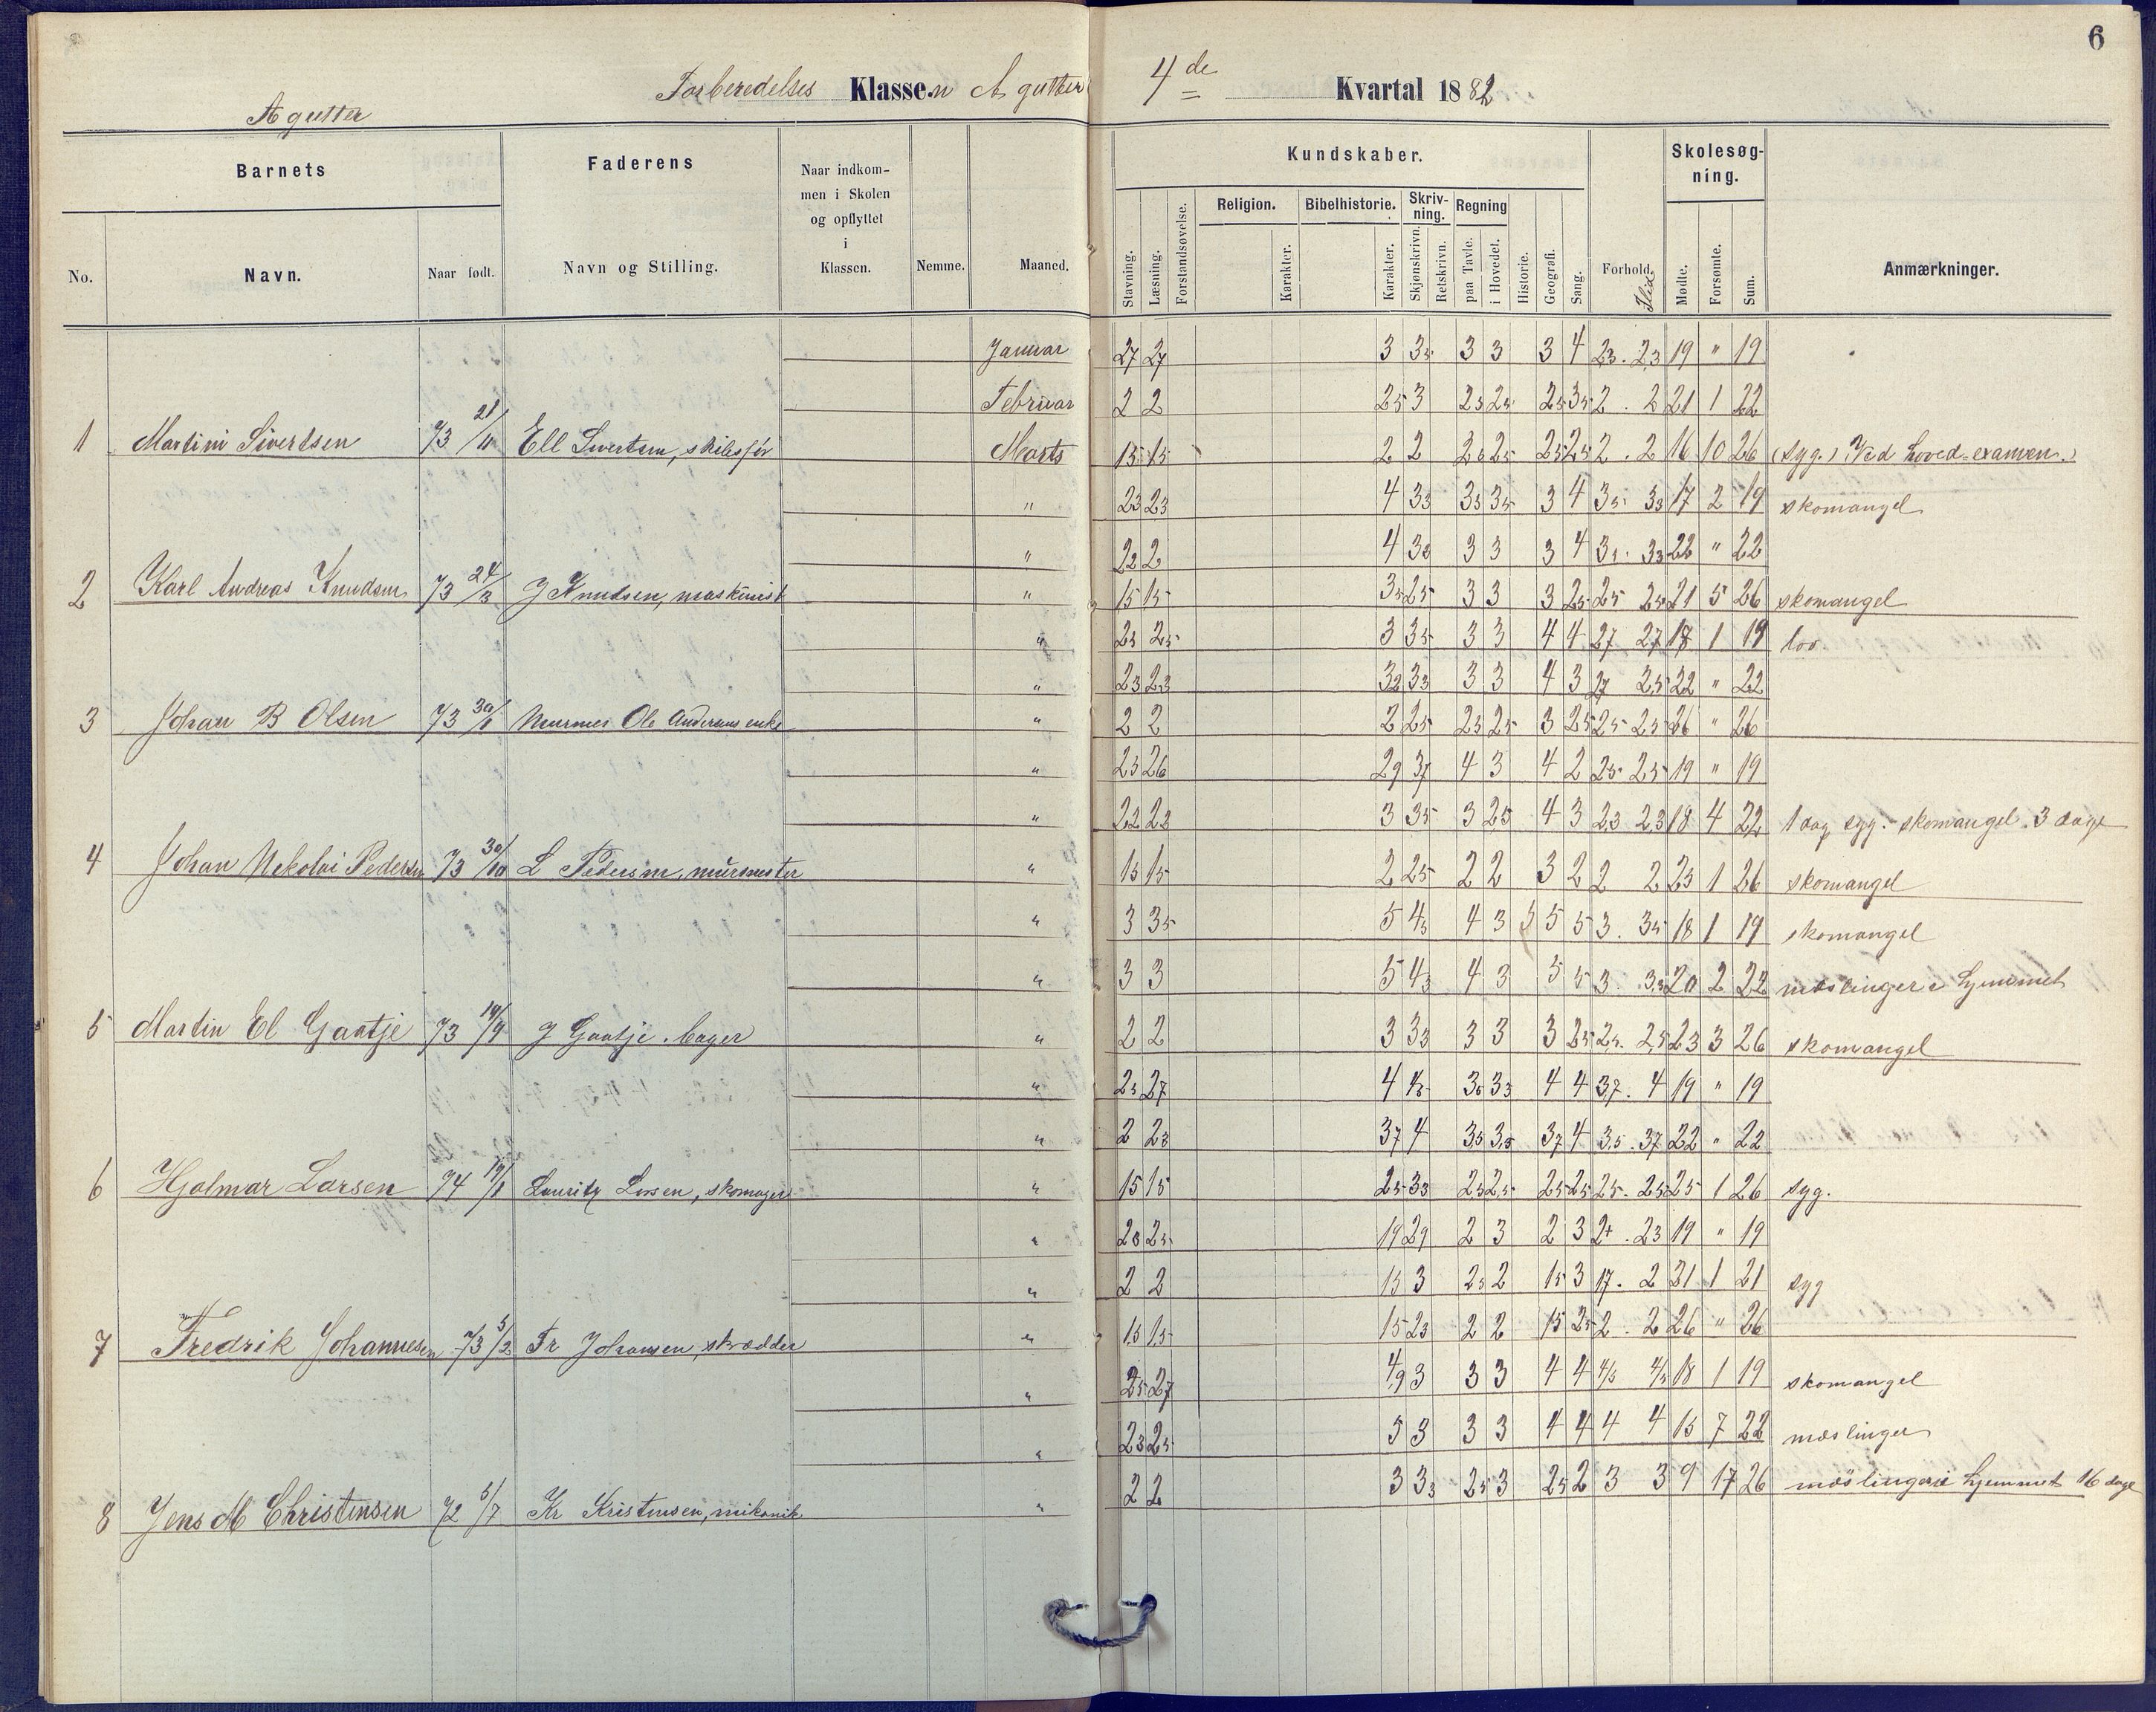 6
Forberedelses Klassen A gutter 4de Kvartal 1882
A gutter
Barnets Faderens Naar indkommen i Skolen og opflyttet i Klassen. Nemme. Maaned. Kundskaber. Forhold. Flid Skolesøgning. Anmærkninger.
No. Navn. Naar født. Navn og Stilling.
Stavning. Læsning. Forstandsøvelse. Religion. Karakter. Bibelhistorie. Karakter. Skrivning. Skjønskrivn. Retskrivn. Regning paa Tavle. i Hovedet. Historie. Geografi. Sang. Mødte. Forsømte. Sum.
Januar 27 27 3 35 3 3 3 4 23. 23 19 " 19
Februar 2 2 25 3 25 25 25 35 2. 2 21 1 22
1 Martini Sivertsen 73 21/11 Ell Sivertsen, Marts 15 15 2 2 25 25 25 25 2. 2 16 10 26 (syg.) Ved hoved-examen.
" 23 23 4 33 35 35 3 4 35 33 17 2 19 skomangel
" 22 2 4 33 3 3 3 4 33 22 " 22
2 Karl Andreas Knudsen 73 24/3 J Knudsen, maskinist " 15 15 35 25 3 3 3 25 25 25 21 5 26 skomangel
" 25 25 3 35 3 3 4 4 27 27 18 1 19 lov
" 23 23 32 33 3 3 4 3 27 25 22 " 22
3 Johan B Olsen 73 30/1 Murmes Ole Andersens enke " 2 2 2 25 25 25 3 25 25 25 26 " 26
" 25 26 29 37 4 3 4 2 25 25 19 " 19
" 22 22 3 35 3 25 4 3 23 23 18 4 22 1 dag syg. skomangel. 3 dage
4 Johan Nekolai Pedersen 73 30/10 L Pedersen, murmester " 15 15 2 25 2 2 3 2 2 2 25 1 26 skomangel
" 3 35 5 45 4 3 5 5 3. 35 18 1 19 skomangel
" 3 3 5 43 4 3 5 5 3. 33 20 2 22 meslinger i hjemmet
5 Martin El Gaatje 73 19/9 J Gaatje. bager " 2 2 3 33 3 3 3 25 25. 25 23 3 26 skomangel
" 25 27 4 45 35 33 4 4 37. 4 19 " 19
" 2 23 37 4 35 35 37 4 35. 37 22 " 22
6 Hjalmar Larsen 74 19/1 Lauritz Larsen, skomager " 15 15 25 33 25 25 25 25 25. 25 25 1 26 syg.
" 23 25 19 29 2 3 2 3 2+. 23 19 " 19
" 2 2 15 3 25 2 15 3 17. 2 21 1 21 syg
7 Fredrik Johannesen 73 5/2 Fr Johansen, skrædder " 15 15 15 23 2 2 15 25 2. 2 26 " 26
" 25 27 49 3 3 3 4 4 4/5 4/5 18 1 19 skomangel
" 23 25 5 3 3 3 4 4 4 4 15 7 22 mæslinger
8 Jens M Christensen 72 5/7 Kr Kristensen, mikanik " 2 2 3 33 25 3 25 2 3 3 9 17 26 mæslinger i hjemmet 16 dage